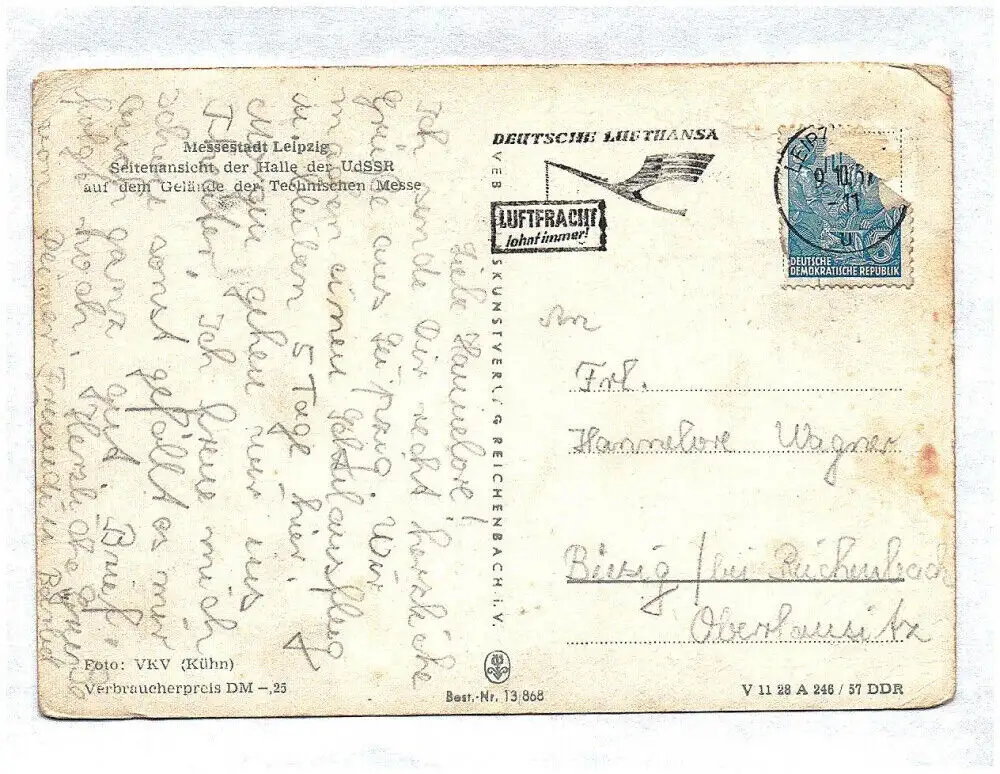 Messestadt Leipzig
Seitenansicht der Halle der UdSSR
auf dem Gelände der Technischen Messe
Liebe Hannelore!
Ich sende Dir recht herzliche
Grüße aus Leipzig. Wir
machen einen
5 Tage hier.
Morgen gehen wir ins
Theater. Ich freue mich
schon sonst gefällt es mir
auch ganz gut. Brief
folgt noch. Herzliche Grüße
von Deiner Freundin
Foto: VKV (Kühn)
Verbraucherpreis DM –,25
VEB SKUNSTVERL G REICHENBACH i. V.
Best.-Nr. 13 868
DEUTSCHE LUFTHANSA
LUFTFRACHT
lohnt immer!
LEIPZ
9 10.57
-11
u
DEUTSCHE
DEMOKRATISCHE REPUBLIK
An
Frl.
Hannelore Wagner
/ bei Reichenbach
Oberlausitz
V 11 28 A 246 / 57 DDR